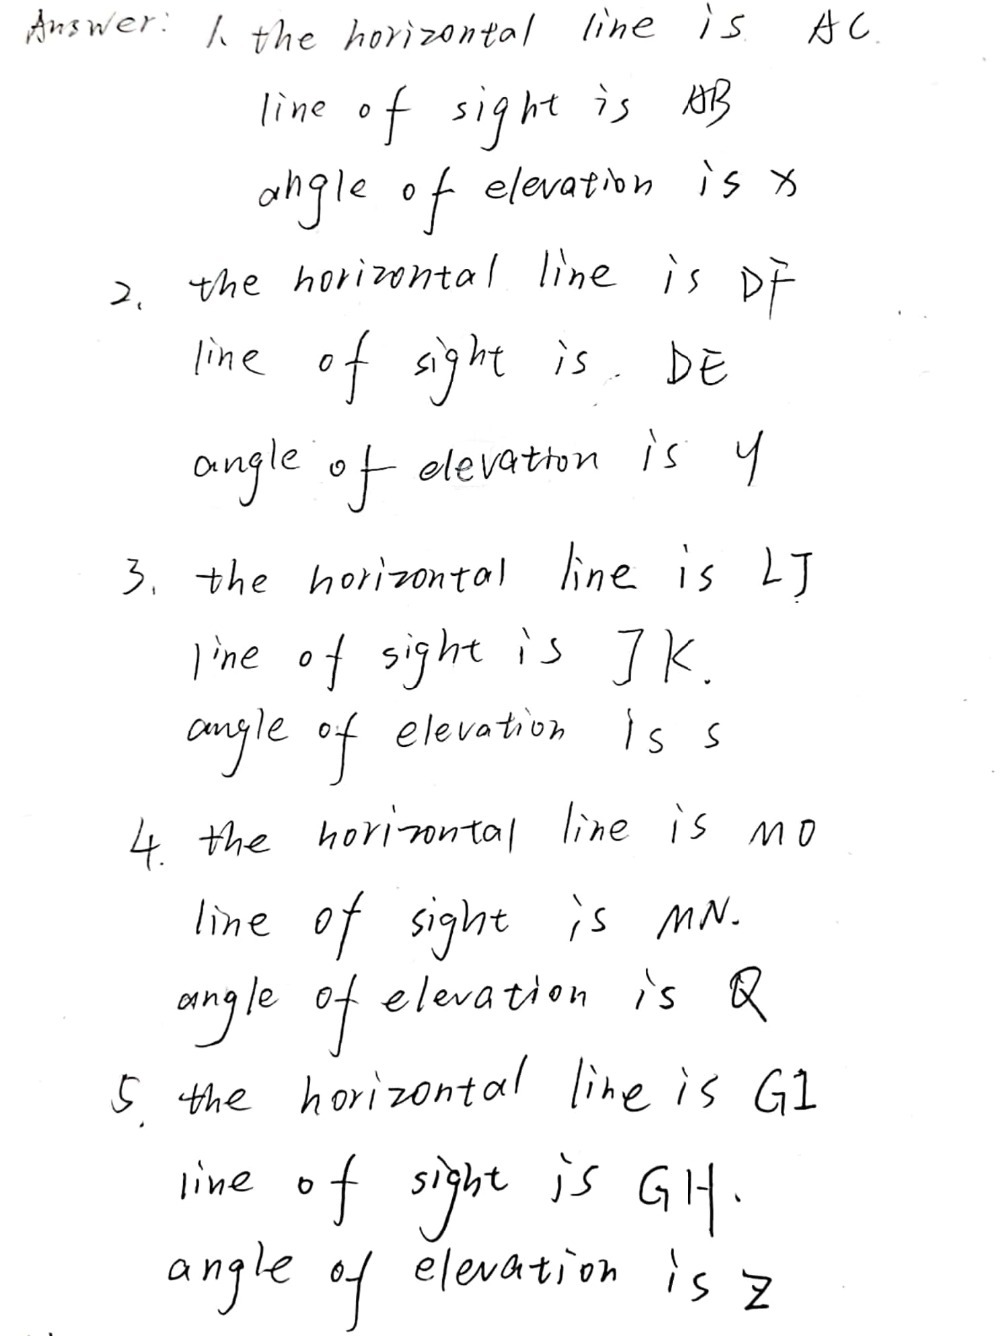 Answer: 1. the horizontal line is AC.
line of sight is AB
angle of elevation is x
2. the horizontal line is DF
line of sight is DE
angle of elevation is y
3. the horizontal line is LJ
line of sight is JK.
angle of elevation is s
4. the horizontal line is MO
line of sight is MN.
angle of elevation is Q
5. the horizontal line is GI
line of sight is GH.
angle of elevation is z